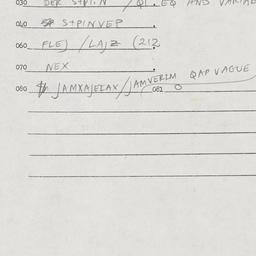 030 DER S+PI.N / QI. EQ AND VARIAB
040 S+PINVEP
060 FLEJ / LAJZ (212
070 NEX
080 JAMXAJEIAX/JAMVERIM QAP VAGUE
081 O